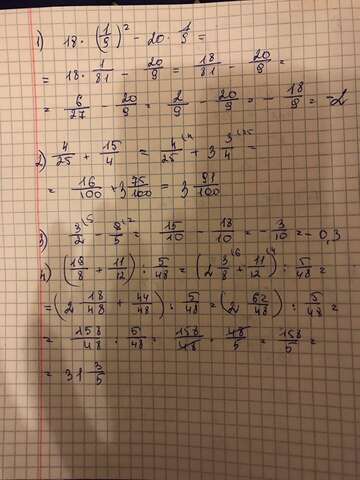 1) 18 · (1/9)² - 20 · 1/9 =
= 18 · 1/81 - 20/9 = 18/81 - 20/9 =
= 6/27 - 20/9 = 2/9 - 20/9 = - 18/9 = -2
2) 4/25 + 15/4 = 4/25 + 3 3/4 =
= 16/100 + 3 75/100 = 3 91/100
3) 3/2 - 9/5 = 15/10 - 18/10 = - 3/10 = - 0,3
4) (19/8 + 11/12) : 5/48 = (2 3/8 + 11/12) : 5/48 =
= (2 18/48 + 44/48) : 5/48 = (2 62/48) : 5/48 =
= 158/48 : 5/48 = 158/48 · 48/5 = 158/5 =
= 31 3/5